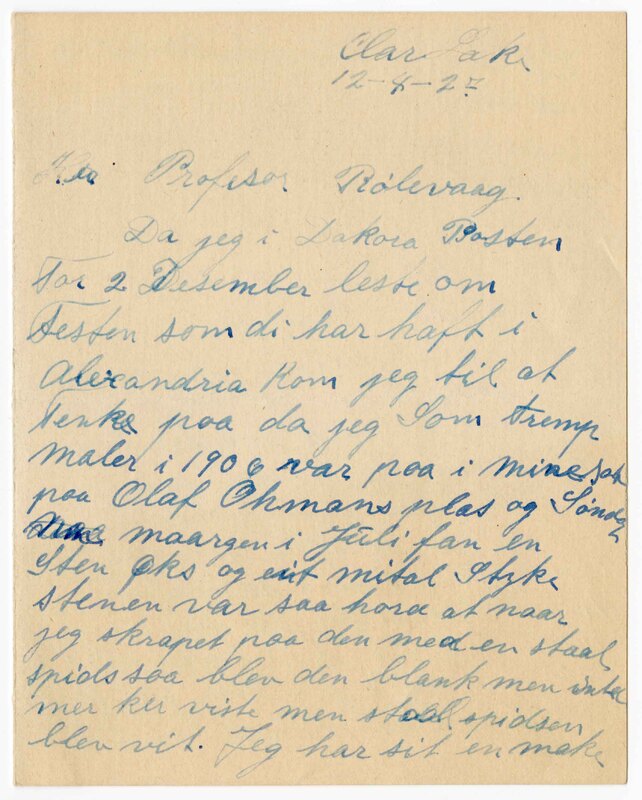 Clar Lake
12-4-27
Profesor Rölevaag.
Da jeg i Dakota Posten
for 2 Desember leste om
Festen som di har haft i
Alexandria kom jeg til at
Tenke paa da jeg Som tremp
maler i 1906 var paa i
paa Olaf Ohmans plas og Söndag
maargen i Juli fan en
Sten öks og eit mital Styke
stenen var saa hord at naar
jeg skrapet paa den med en staal
spids saa blev den blank men intet
mer ker viste men staal spidsen
blev vit. Jeg har sit en make